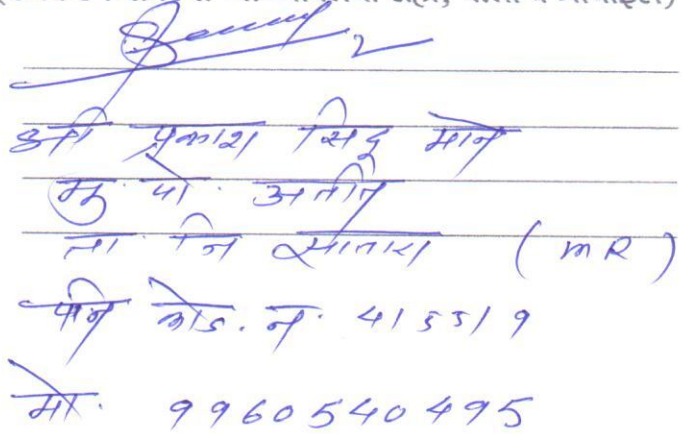 श्री प्रकाश सिदू माने
मु. पो. अतीत
ता. जि सातारा (MR)
पीन कोड. नं. 415519
मो. 9960540495